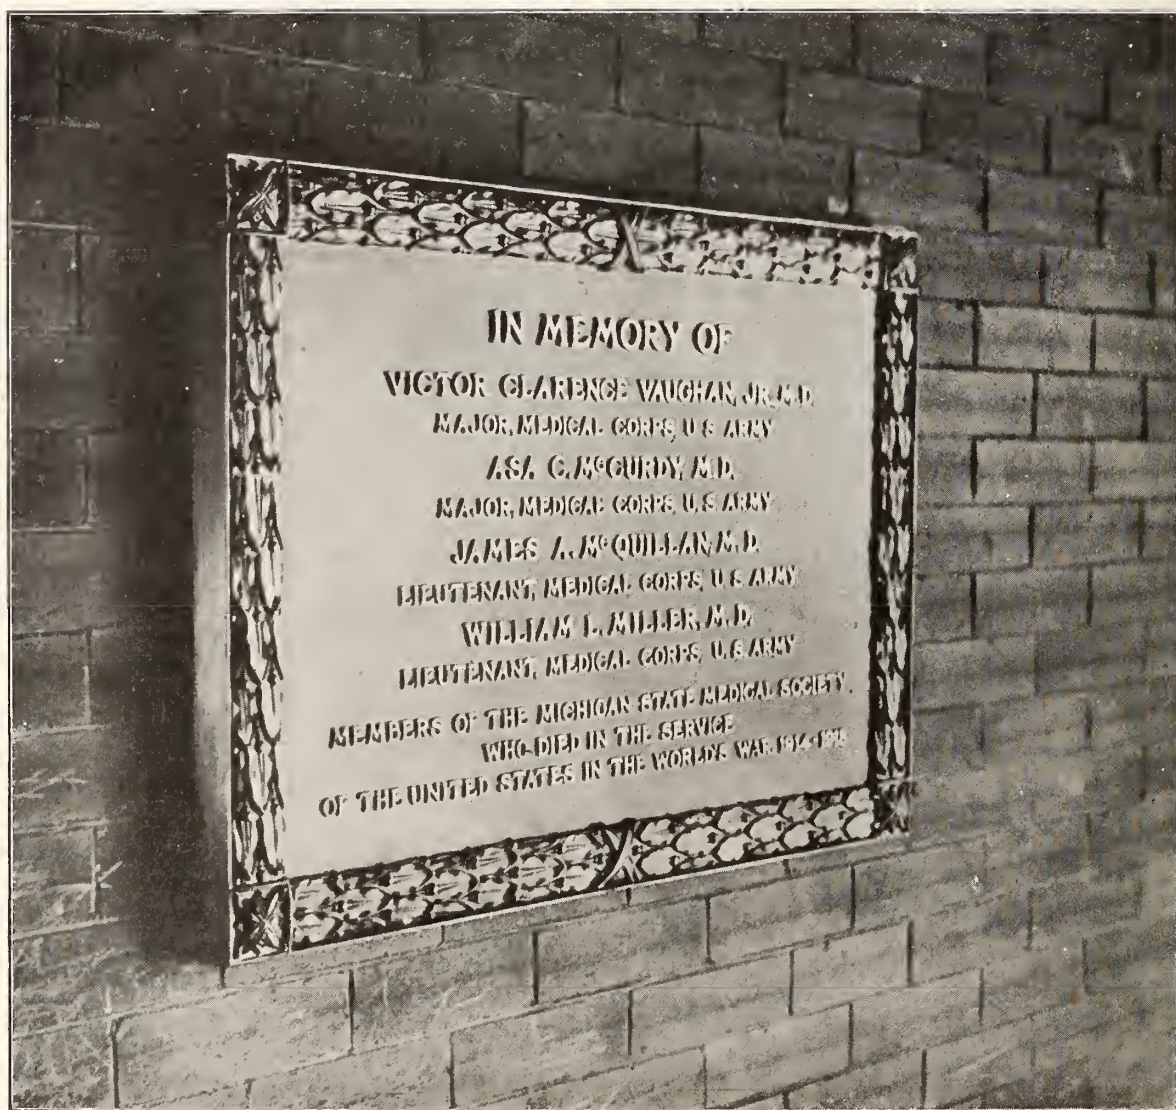 IN MEMORY OF
VICTOR CLARENCE VAUGHAN, JR., M.D.
MAJOR, MEDICAL CORPS, U S ARMY
ASA C. McCURDY, M.D.
MAJOR, MEDICAL CORPS, U. S. ARMY
JAMES A. McQUILLAN, M.D.
LIEUTENANT, MEDICAL CORPS, U S ARMY
WILLIAM L. MILLER, M.D.
LIEUTENANT, MEDICAL CORPS, U. S. ARMY
MEMBERS OF THE MICHIGAN STATE MEDICAL SOCIETY
WHO DIED IN THE SERVICE
OF THE UNITED STATES IN THE WORLD'S WAR 1914-1918